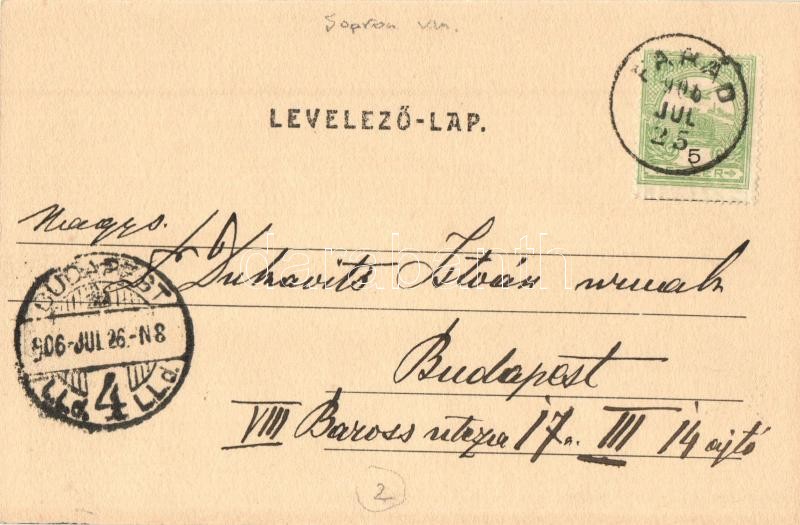 Sopron vm.
FARÁD
906
JUL
25
5
LEVELEZŐ-LAP.
Nagys.
Dr Dukavits István urnak
BUDAPEST
906-JUL.26.-N8
4
Budapest
VIII Baross utcza 17 a. III 14 ajtó
2